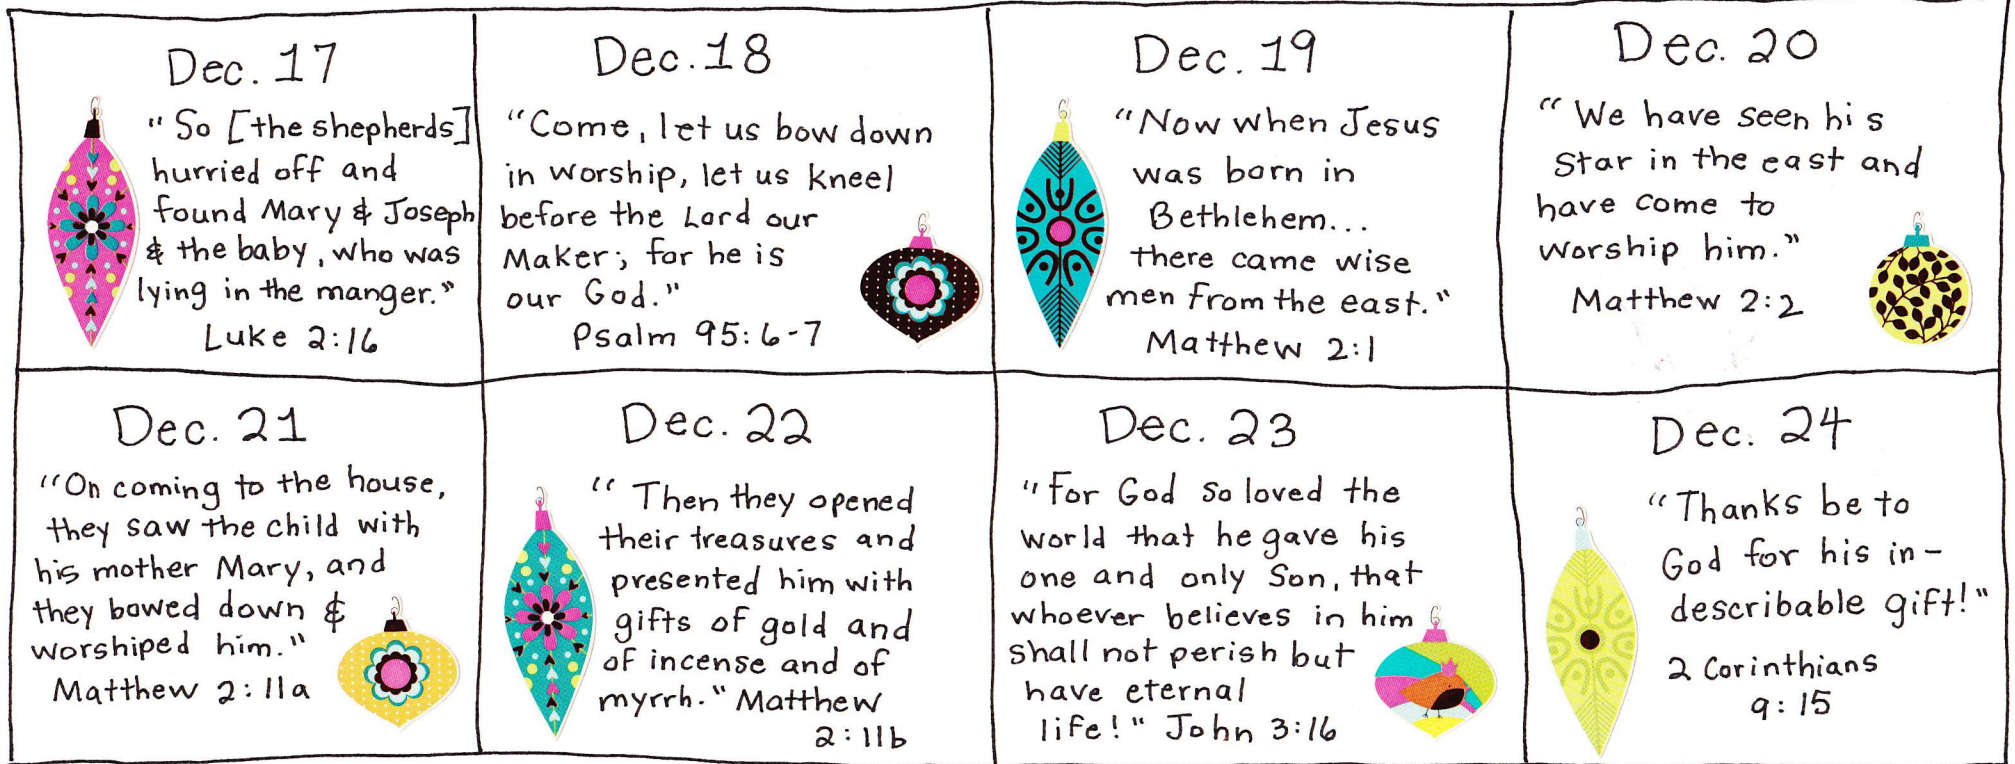 Dec. 17
"So [the shepherds]
hurried off and
found Mary & Joseph
& the baby, who was
lying in the manger."
Luke 2:16
Dec. 18
"Come, let us bow down
in worship, let us kneel
before the Lord our
Maker; for he is
our God."
Psalm 95:6-7
Dec. 19
"Now when Jesus
was born in
Bethlehem...
there came wise
men from the east."
Matthew 2:1
Dec. 20
"We have seen his
star in the east and
have come to
worship him."
Matthew 2:2
Dec. 21
"On coming to the house,
they saw the child with
his mother Mary, and
they bowed down &
worshiped him."
Matthew 2:11a
Dec. 22
"Then they opened
their treasures and
presented him with
gifts of gold and
of incense and of
myrrh." Matthew
2:11b
Dec. 23
"For God so loved the
world that he gave his
one and only Son, that
whoever believes in him
shall not perish but
have eternal
life!" John 3:16
Dec. 24
"Thanks be to
God for his in-
describable gift!"
2 Corinthians
9:15